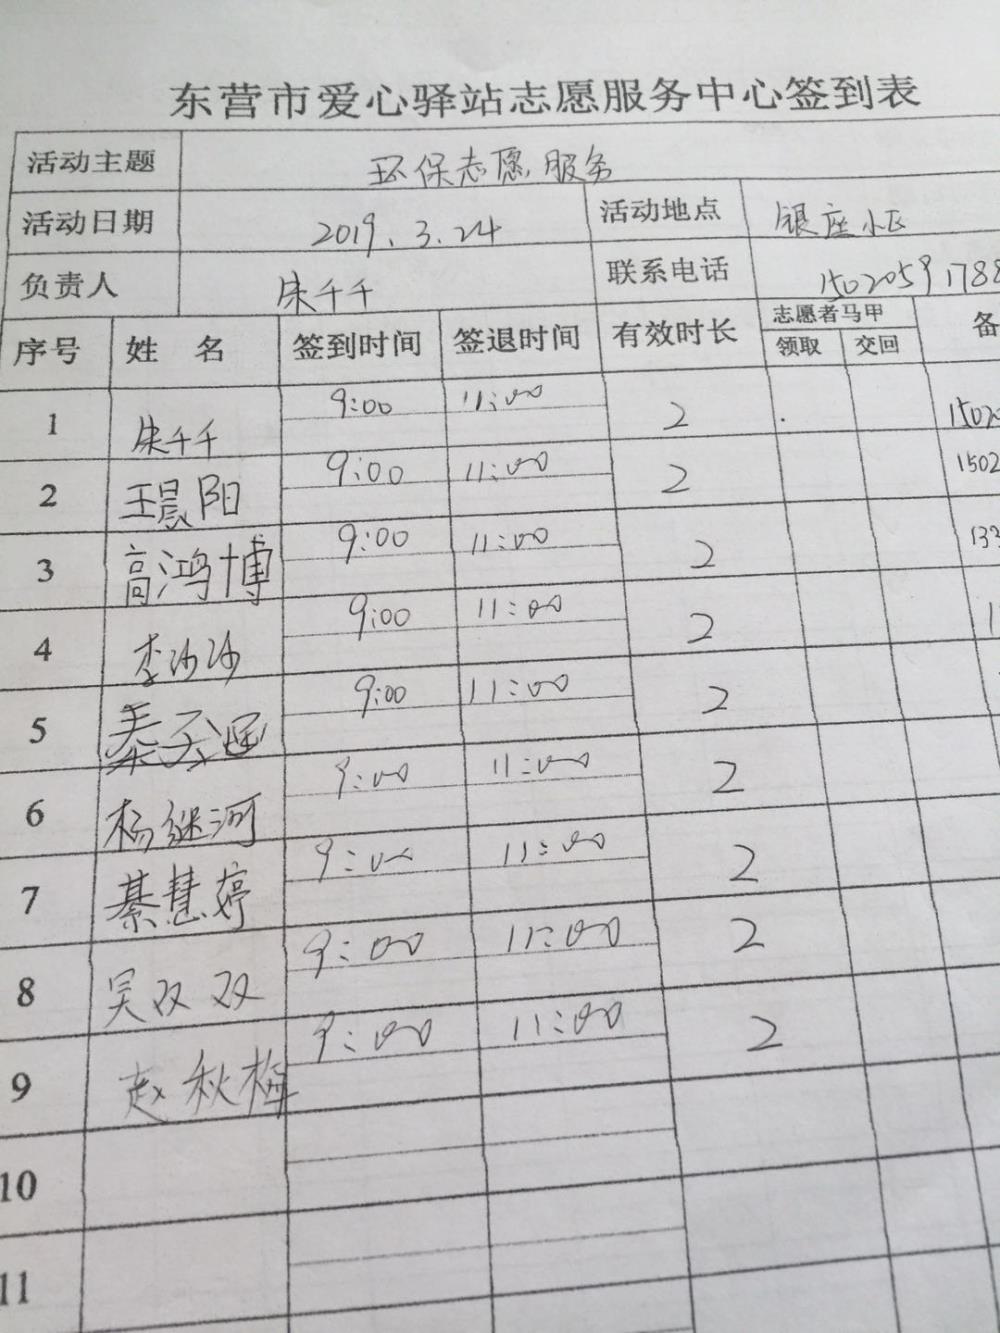 东营市爱心驿站志愿服务中心签到表
活动主题 环保志愿服务
活动日期 2019.3.24 活动地点 银座小区
负责人 朱千千 联系电话 15020591788
序号 姓 名 签到时间 签退时间 有效时长 志愿者马甲 备
领取 交回
1 朱千千 9:00 11:00 2 1502
2 王晨阳 9:00 11:00 2 1502
3 高鸿博 9:00 11:00 2 133
4 李沙沙 9:00 11:00 2 1
5 9:00 11:00 2
6 杨继河 9:00 11:00 2
7 綦慧婷 9:00 11:00 2
8 吴双双 9:00 11:00 2
9 赵秋梅 9:00 11:00 2
10
11